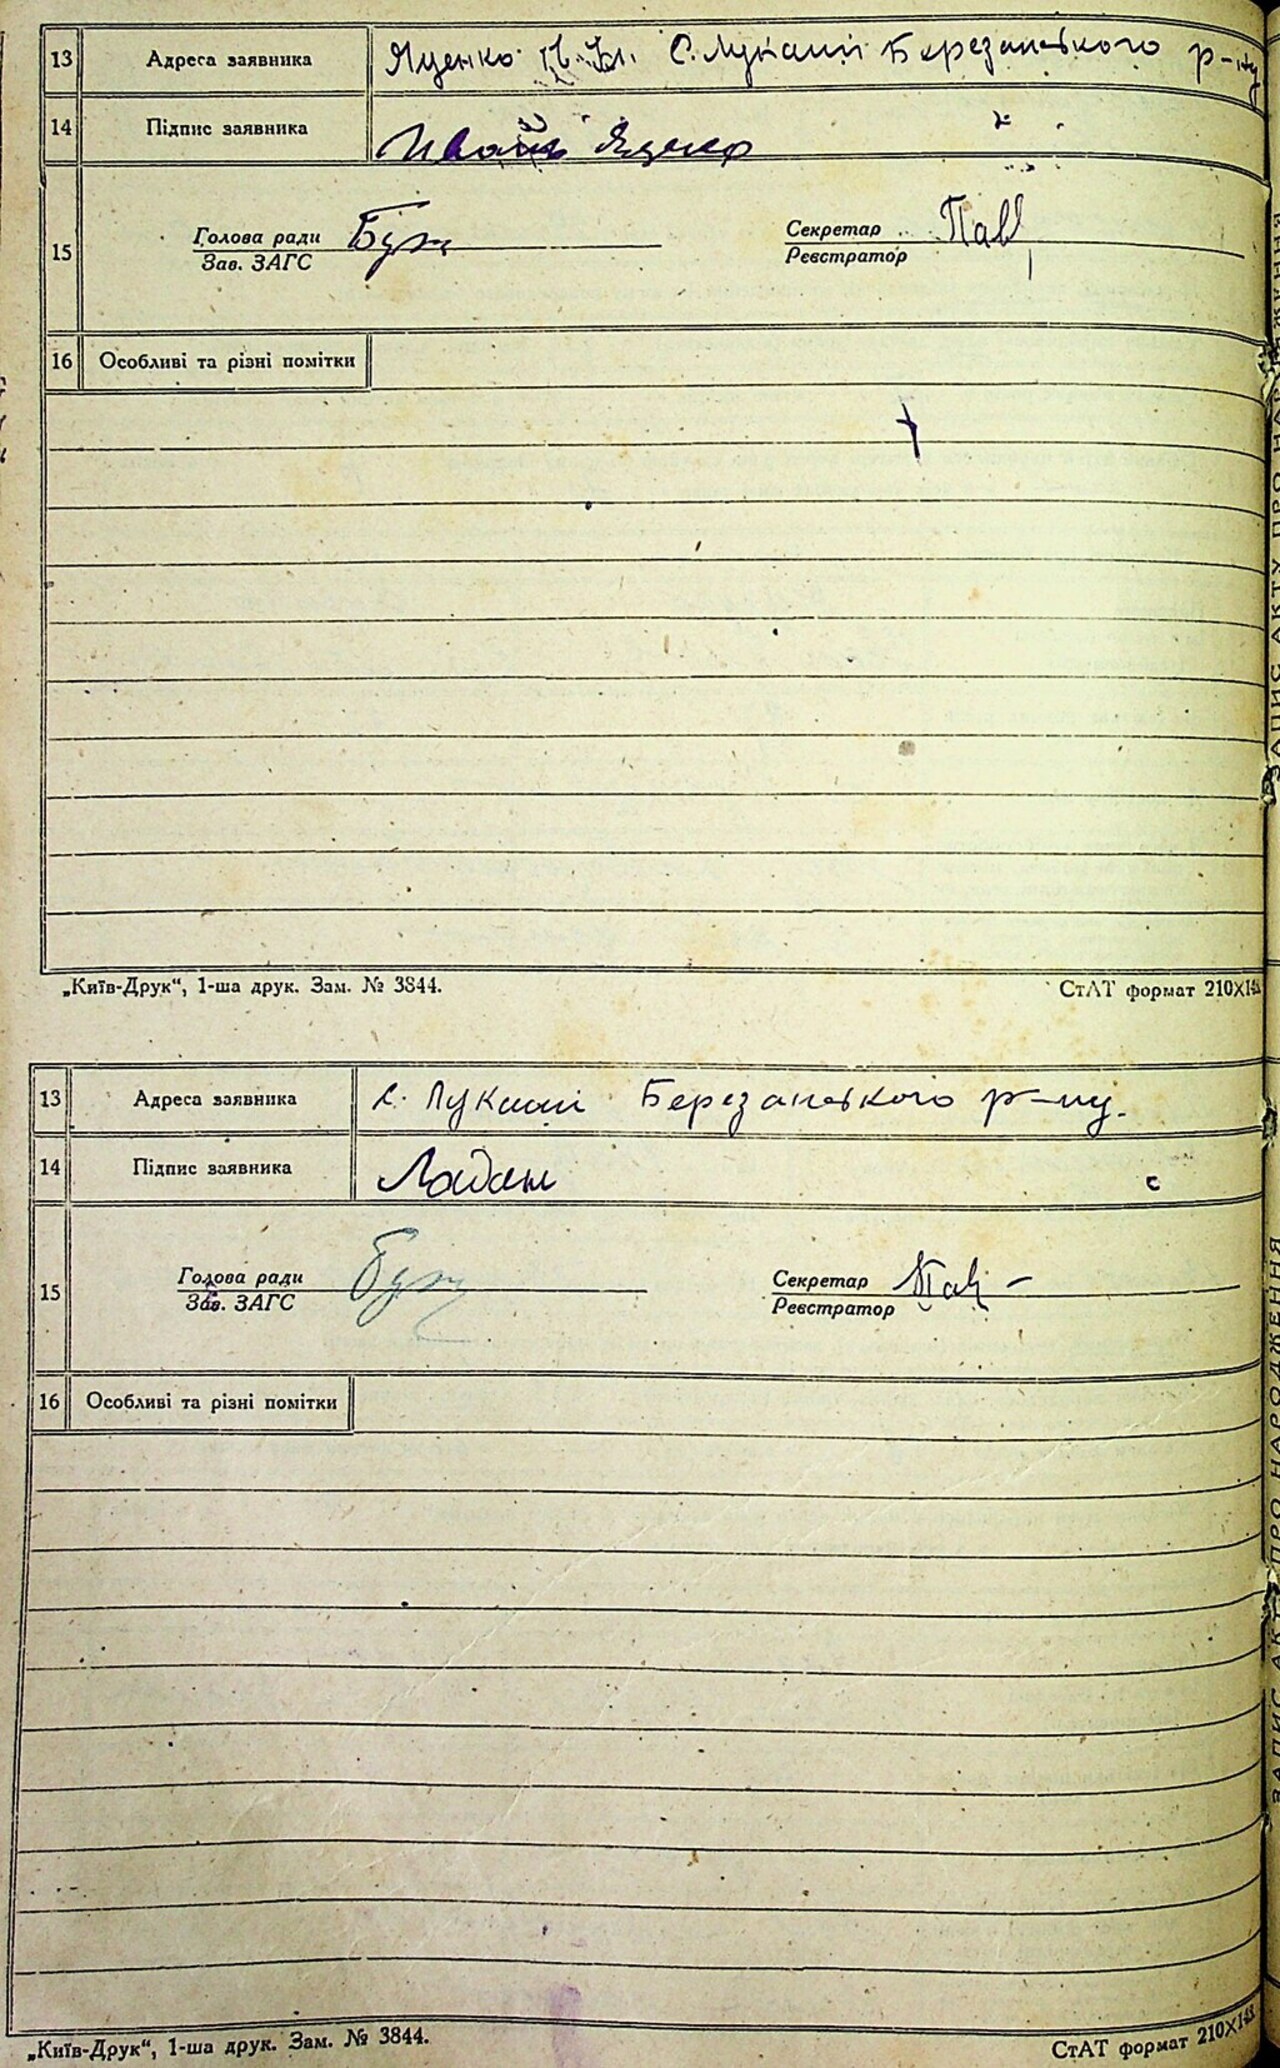 13 Адреса заявника Яценко Ів. Ів. С. Лукаші Березанського р-ну
14 Підпис заявника Иван Яценко
15 Голова ради Секретар
Зав. ЗАГС Реєстратор
16 Особливі та різні помітки
„Київ-Друк“, 1-ша друк. Зам. № 3844. СтАТ формат 210X148
13 Адреса заявника с. Лукаші Березанського р-ну.
14 Підпис заявника
15 Голова ради Секретар
Зав. ЗАГС Реєстратор
16 Особливі та різні помітки
„Київ-Друк“, 1-ша друк. Зам. № 3844. СтАТ формат 210X148
ЗАПИС АКТУ ПРО НАРОДЖЕННЯ